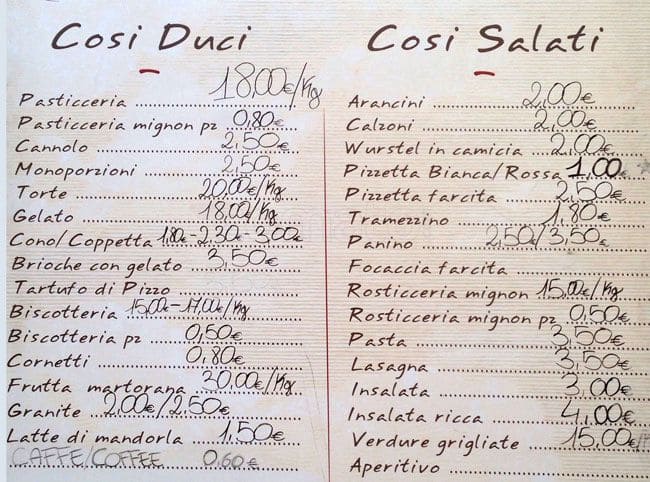 Cosi Duci
Pasticceria 18,00€/Kg
Pasticceria mignon pz 0,80€
Cannolo 2,50€
Monoporzioni 2,50€
Torte 20,00€/Kg
Gelato 18,00/Kg
Cono/Coppetta 1,80€-2,30€-3,00€
Brioche con gelato 3,50€
Tartufo di Pizzo
Biscotteria 15,00€-17,00€/Kg
Biscotteria pz 0,50€
Cornetti 0,80€
Frutta martorana 30,00€/Kg
Granite 2,00€/2,50€
Latte di mandorla 1,50€
CAFFE/COFFEE 0,60€
Cosi Salati
Arancini 2,00€
Calzoni 2,00€
Wurstel in camicia 2,00€
Pizzetta Bianca/Rossa 1,00
Pizzetta farcita 2,50€
Tramezzino 1,80€
Panino 2,50/3,50€
Focaccia farcita
Rosticceria mignon 15,00€/Kg
Rosticceria mignon pz 0,50€
Pasta 3,50€
Lasagna 3,50€
Insalata 3,00€
Insalata ricca 4,00€
Verdure grigliate 15,00€/
Aperitivo